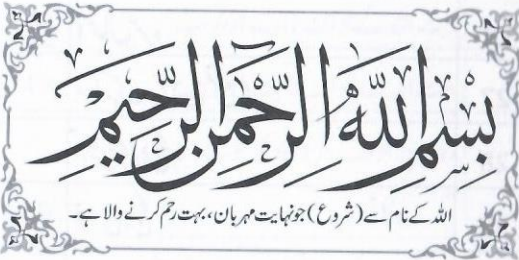 بِسْمِ اللّٰهِ الرَّحْمٰنِ الرَّحِيْمِ
اللہ کے نام سے (شروع) جو نہایت مہربان، بہت رحم کرنے والا ہے۔